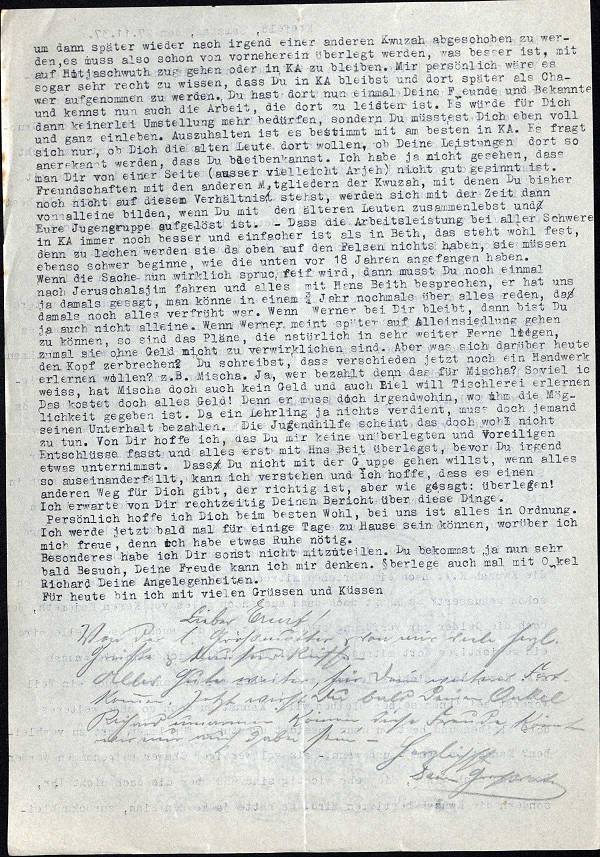 um dann später wieder nach irgend einer anderen Kwuzah abgeschoben zu wer-
den,es muss also schon von vorneherein überlegt werden, was besser ist, mit
auf Hitjaschwuth zug gehen oder in KA zu bleiben. Mir persönlich wäre es
sogar sehr recht zu wissen, dass Du in KA bleibst und dort später als Cha-
wer aufgenommen zu werden. Du hast dort nun einmal Deine Freunde und Bekannte
und kennst nun auch die Arbeit, die dort zu leisten ist. Es würde für Dich
dann keinerlei Umstellung mehr bedürfen, sondern Du müsstest Dich eben voll
und ganz einleben. Auszuhalten ist es bestimmt mit am besten in KA. Es fragt
sich nur, ob Dich die alten Leute dort wollen, ob Deine Leistungen dort so
anerekannt werden, dass Du bleibenkannst. Ich habe ja nicht gesehen, dass
man Dir von einer Seite (ausser vielleicht Arjeh) nicht gut gesinnt ist.
Freundschaften mit den anderen Mitgliedern der Kwuzah, mit denen Du bisher
noch nicht auf diesem Verhältnis stehst, werden sich mit der Zeit dann
von alleine bilden, wenn Du mit den älteren Leuten zusammenlebst und
Eure Jugengruppe aufgelöst ist. - Dass die Arbeitsleistung bei aller Schwere
in KA immer noch besser und einfacher ist als in Beth, das steht wohl fest,
denn zu lachen werden sie da oben auf den Felsen nichts haben, sie müssen
ebenso schwer beginne, wie die unten vor 18 Jahren angefangen haben.
Wenn die Sache nun wirklich spruchreif wird, dann musst Du noch einmal
nach Jeruschalajim fahren und alles mit Hans Beith besprechen, er hat uns
ja damals gesagt, man könne in einem ½ Jahr nochmals über alles reden, da
damals noch alles verfrüht war. Wenn Werner bei Dir bleibt, dann bist Du
ja auch nicht alleine. Wenn Werner meint später auf Alleinsiedlung gehen
zu können, so sind das Pläne, die natürlich in sehr weiter Ferne liegen,
zumal sie ohne Geld nicht zu verwirklichen sind. Aber was sich darüber heute
den Kopf zerbrechen? Du schreibst, dass verschieden jetzt noch ein Handwerk
erlernen wollen? z.B. Mischa. Ja, wer bezahlt denn das für Mischa? Soviel ic
weiss, hat Mischa doch auch kein Geld und auch Eiel will Tischlerei erlernen
Das kostet doch alles Geld! Denn er muss doch irgendwohin, wo ihm die Mög-
lichkeit gegeben ist. Da ein Lehrling ja nichts verdient, muss doch jemand
seinen Unterhalt bezahlen. Die Jugendhilfe scheint das doch wohl nicht
zu tun. Von Dir hoffe ich, das Du mir keine unüberlegten und Voreiligen
Entschlüsse fasst und alles erst mit Hns Beit überlegst, bevor Du irgend
etwas unternimmst. Dass Du nicht mit der Gruppe gehen willst, wenn alles
so auseinanderfällt, kann ich verstehen und ich hoffe, dass es einen
anderen Weg für Dich gibt, der richtig ist, aber wie gesagt: überlegen!
Ich erwarte von Dir rechtzeitig Deinen Bericht über diese Dinge.
Persönlich hoffe ich Dich beim besten Wohl, bei uns ist alles in Ordnung.
Ich werde jetzt bald mal für einige Tage zu Hause sein können, worüber ich
mich freue, denn ich habe etwas Ruhe nötig.
Besonderes habe ich Dir sonst nicht mitzuteilen. Du bekommst ja nun sehr
bald Besuch, Deine Freude kann ich mir denken. Überlege auch mal mit Onkel
Richard Deine Angelegenheiten.
Für heute bin ich mit vielen Grüssen und Küssen
Lieber Ernst,
Von der l. Großmutter &amp; von mir viele herzl.
Grüße &amp;
Alles Gute weiter, für Dein weiteres Fort-
kommen. Jetzt wirst Du bald Deinen Onkel
Richard umarmen können diese Freude
Herzlichst
Dein